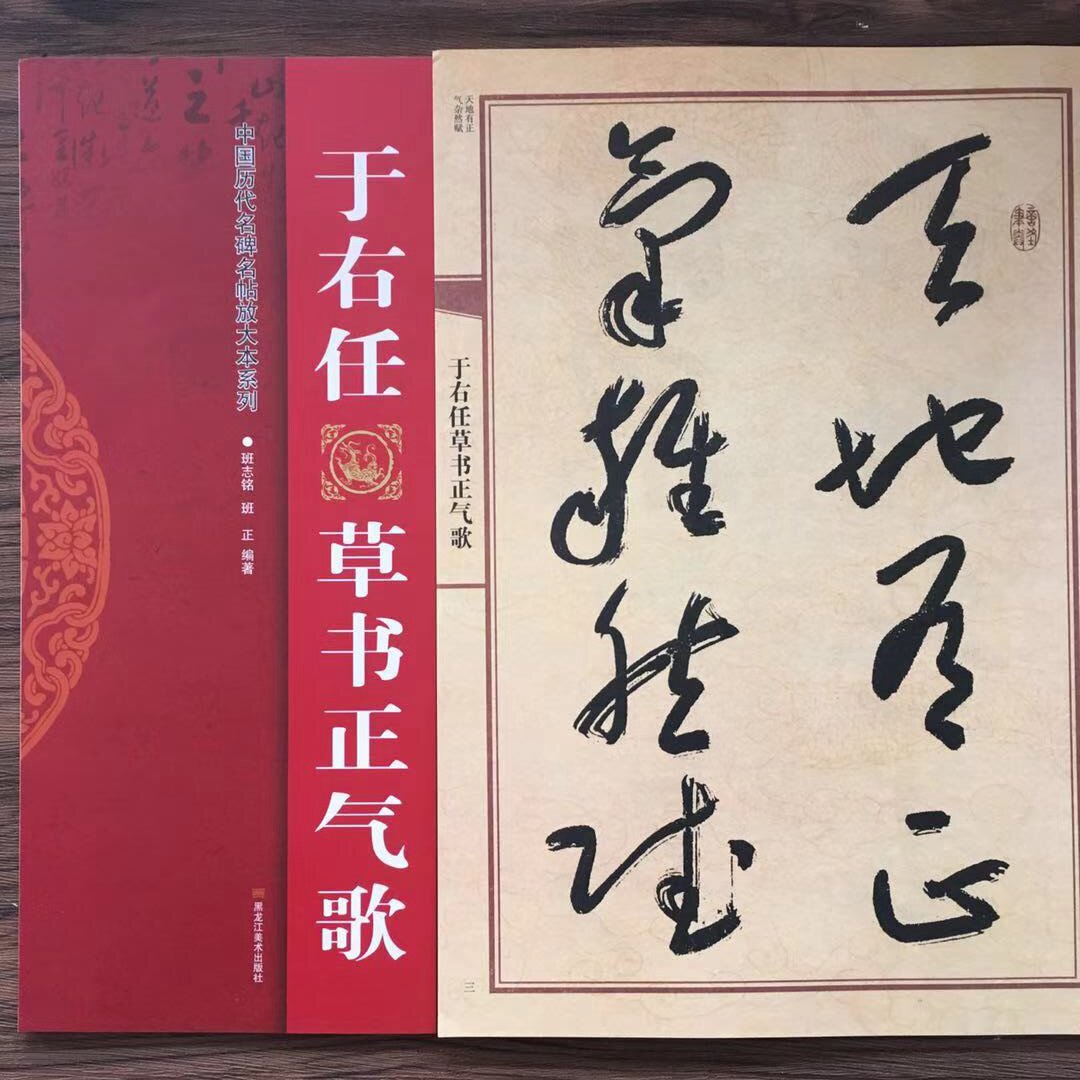 中国历代名碑名帖放大本系列
●班志铭 班 正 编著
于右任
草书正气歌
黑龙江美术出版社
天地有正
气杂然赋
于右任草书正气歌
天地有正
氣雜然賦
三